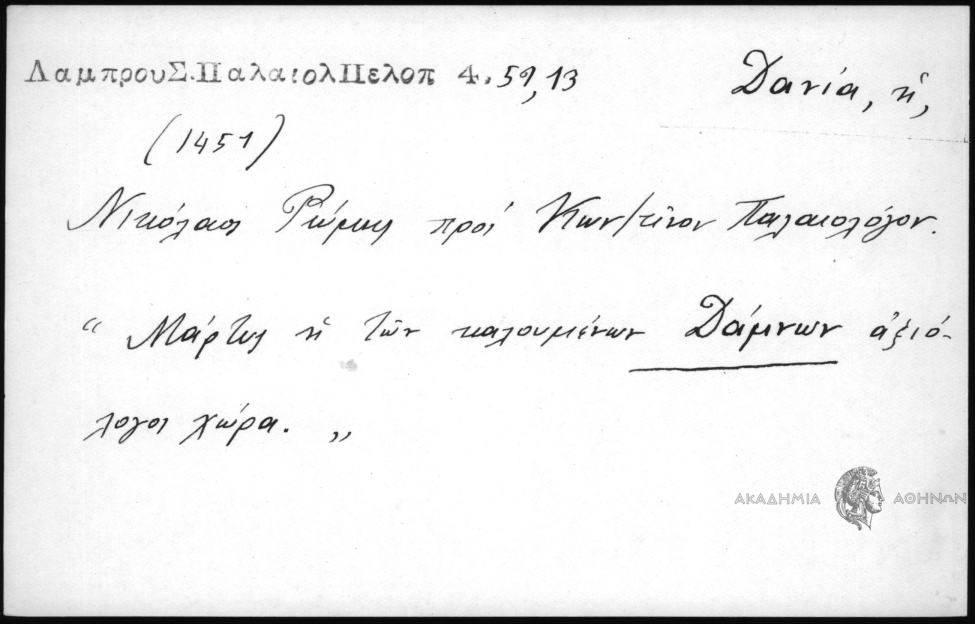 ΛαμπρουΣ.ΠαλαιολΠελοπ 4.59,13
Δανία, ἡ,
(1451)
Νικόλαος Ῥώμης πρὸς Κων/τῖνον Παλαιολόγον.
“ Μάρτυς ἡ τῶν καλουμένων Δάμνων ἀξιό-
λογος χώρα. „
ΑΚΑΔΗΜΙΑ ΑΘΗΝΩΝ